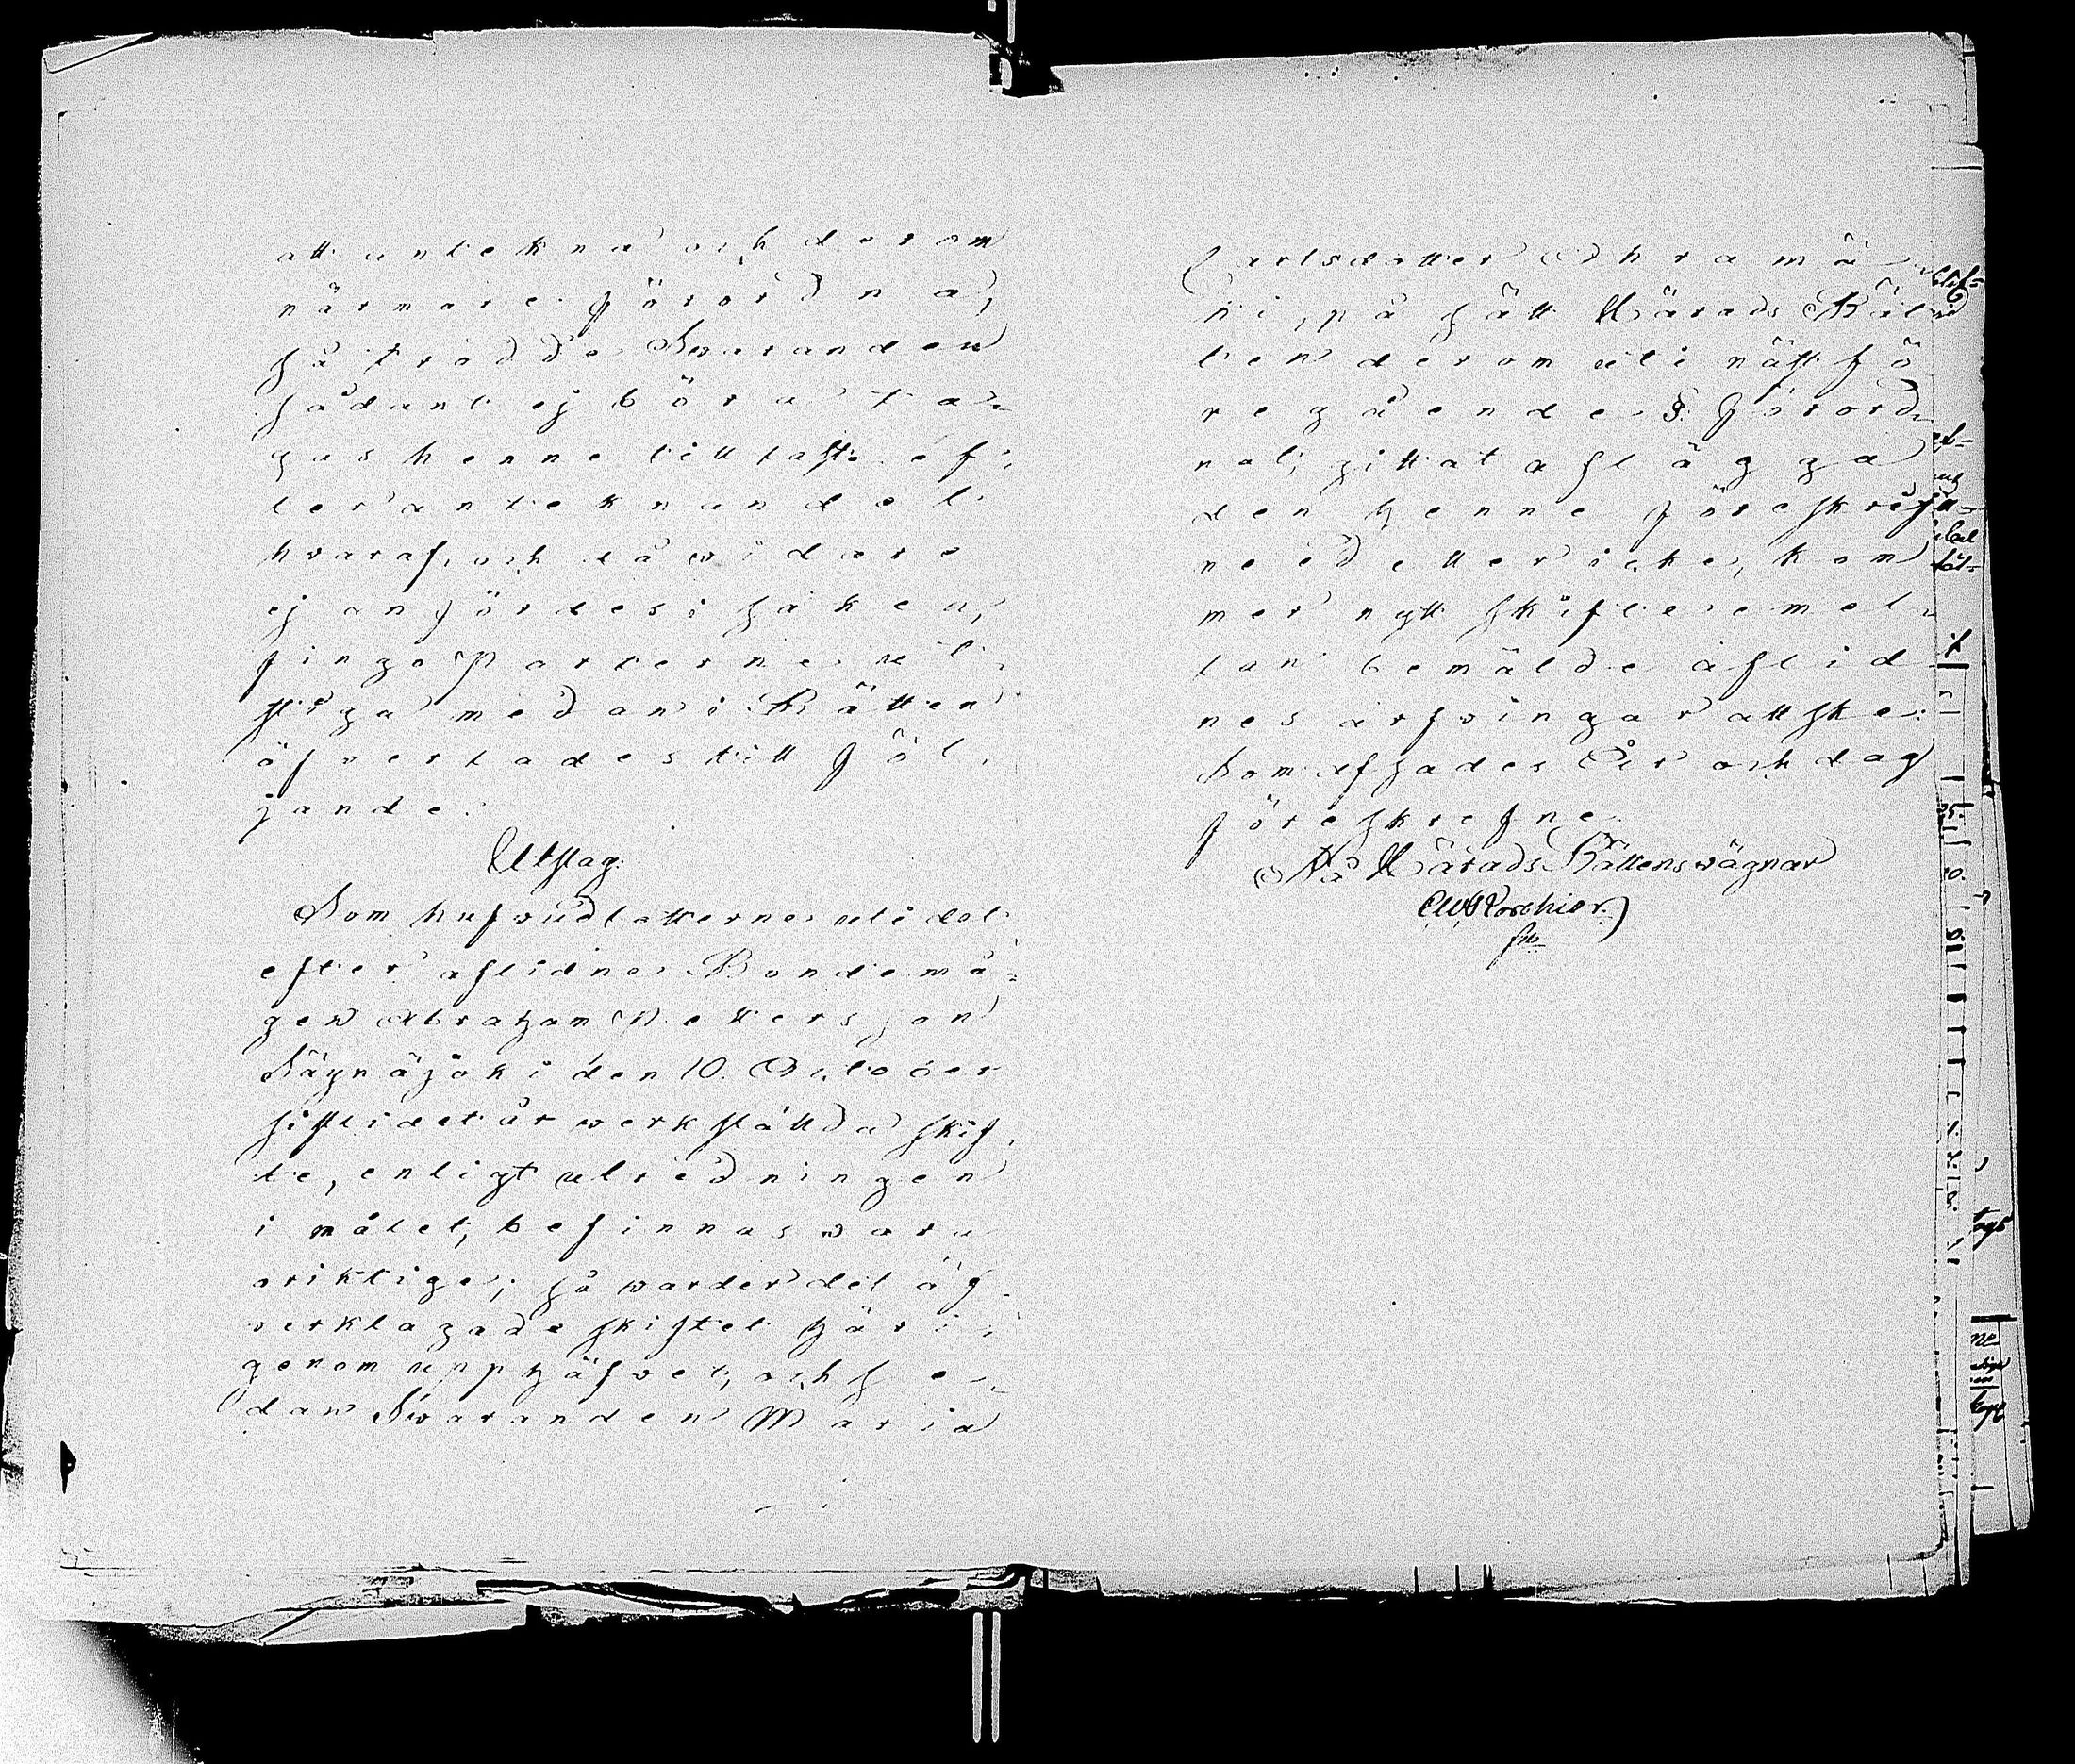 att antekna och derom
närmare förordna,
så trodde Svaranden
sådant ej böra ta-
gas henne till last. Ef-
ter antecknandet
hvaraf, och då widare
ej anfördes i saken,
fingo Parterne ut-
stiga medan i Rätten
öfverlades till föl-
jande.
Utslag:
Som hufvudlotterne uti det
efter aflidne Bondemå-
gen Abraham Pettersson
Näynäjoki den 10. October
sistlidet år werkställda skif-
te, enligt utredningen
i målet, befinnas wara
oriktige; så warder det öf-
verklagade skiftet häri-
genom upphäfvet, och se-
dan Swaranden Maria
Carlsdotter Ohramä-
ki, på sätt Härads Rät-
ten derom uti näst fö-
regående § förord-
nat, gittat aflägga
den henne föreskrif-
ne ed eller icke, kom
mer nytt skifte emel-
lan bemälde aflid
nes arfvingar att ske.
Som afsades År och dag
föreskrefne.
På Härads Rättens vägnar